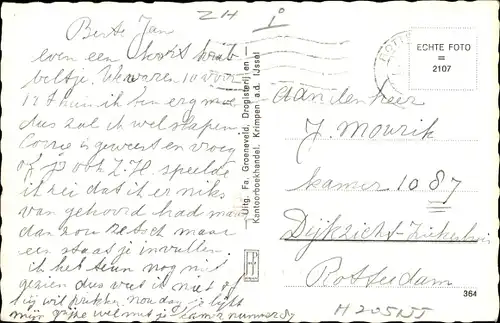 ZH i
Beste Jan
even een kort krab
beltje. We waren 10 voor
12 thuis ik ben erg moe
dus zal ik wel slapen.
Corrie is geweest en vroeg
of jij ook Z.H. speelde
ik zei dat ik er niks
van gehoord had maar
dan zou ze toch maar
een staatje invullen
ik het teun nog niet
gezien dus weet ik niet of
hij wil
mijn wel met je kamer nummer 87
Uitg. Fa. Groeneveld, Drogisterij en
Kantoorboekhandel, Krimpen a.d. IJssel
ROTTE
ECHTE FOTO
=
2107
aan den heer
J. Mourik
kamer 1087
Dijkzicht-Ziekenhuis
Rotterdam
364